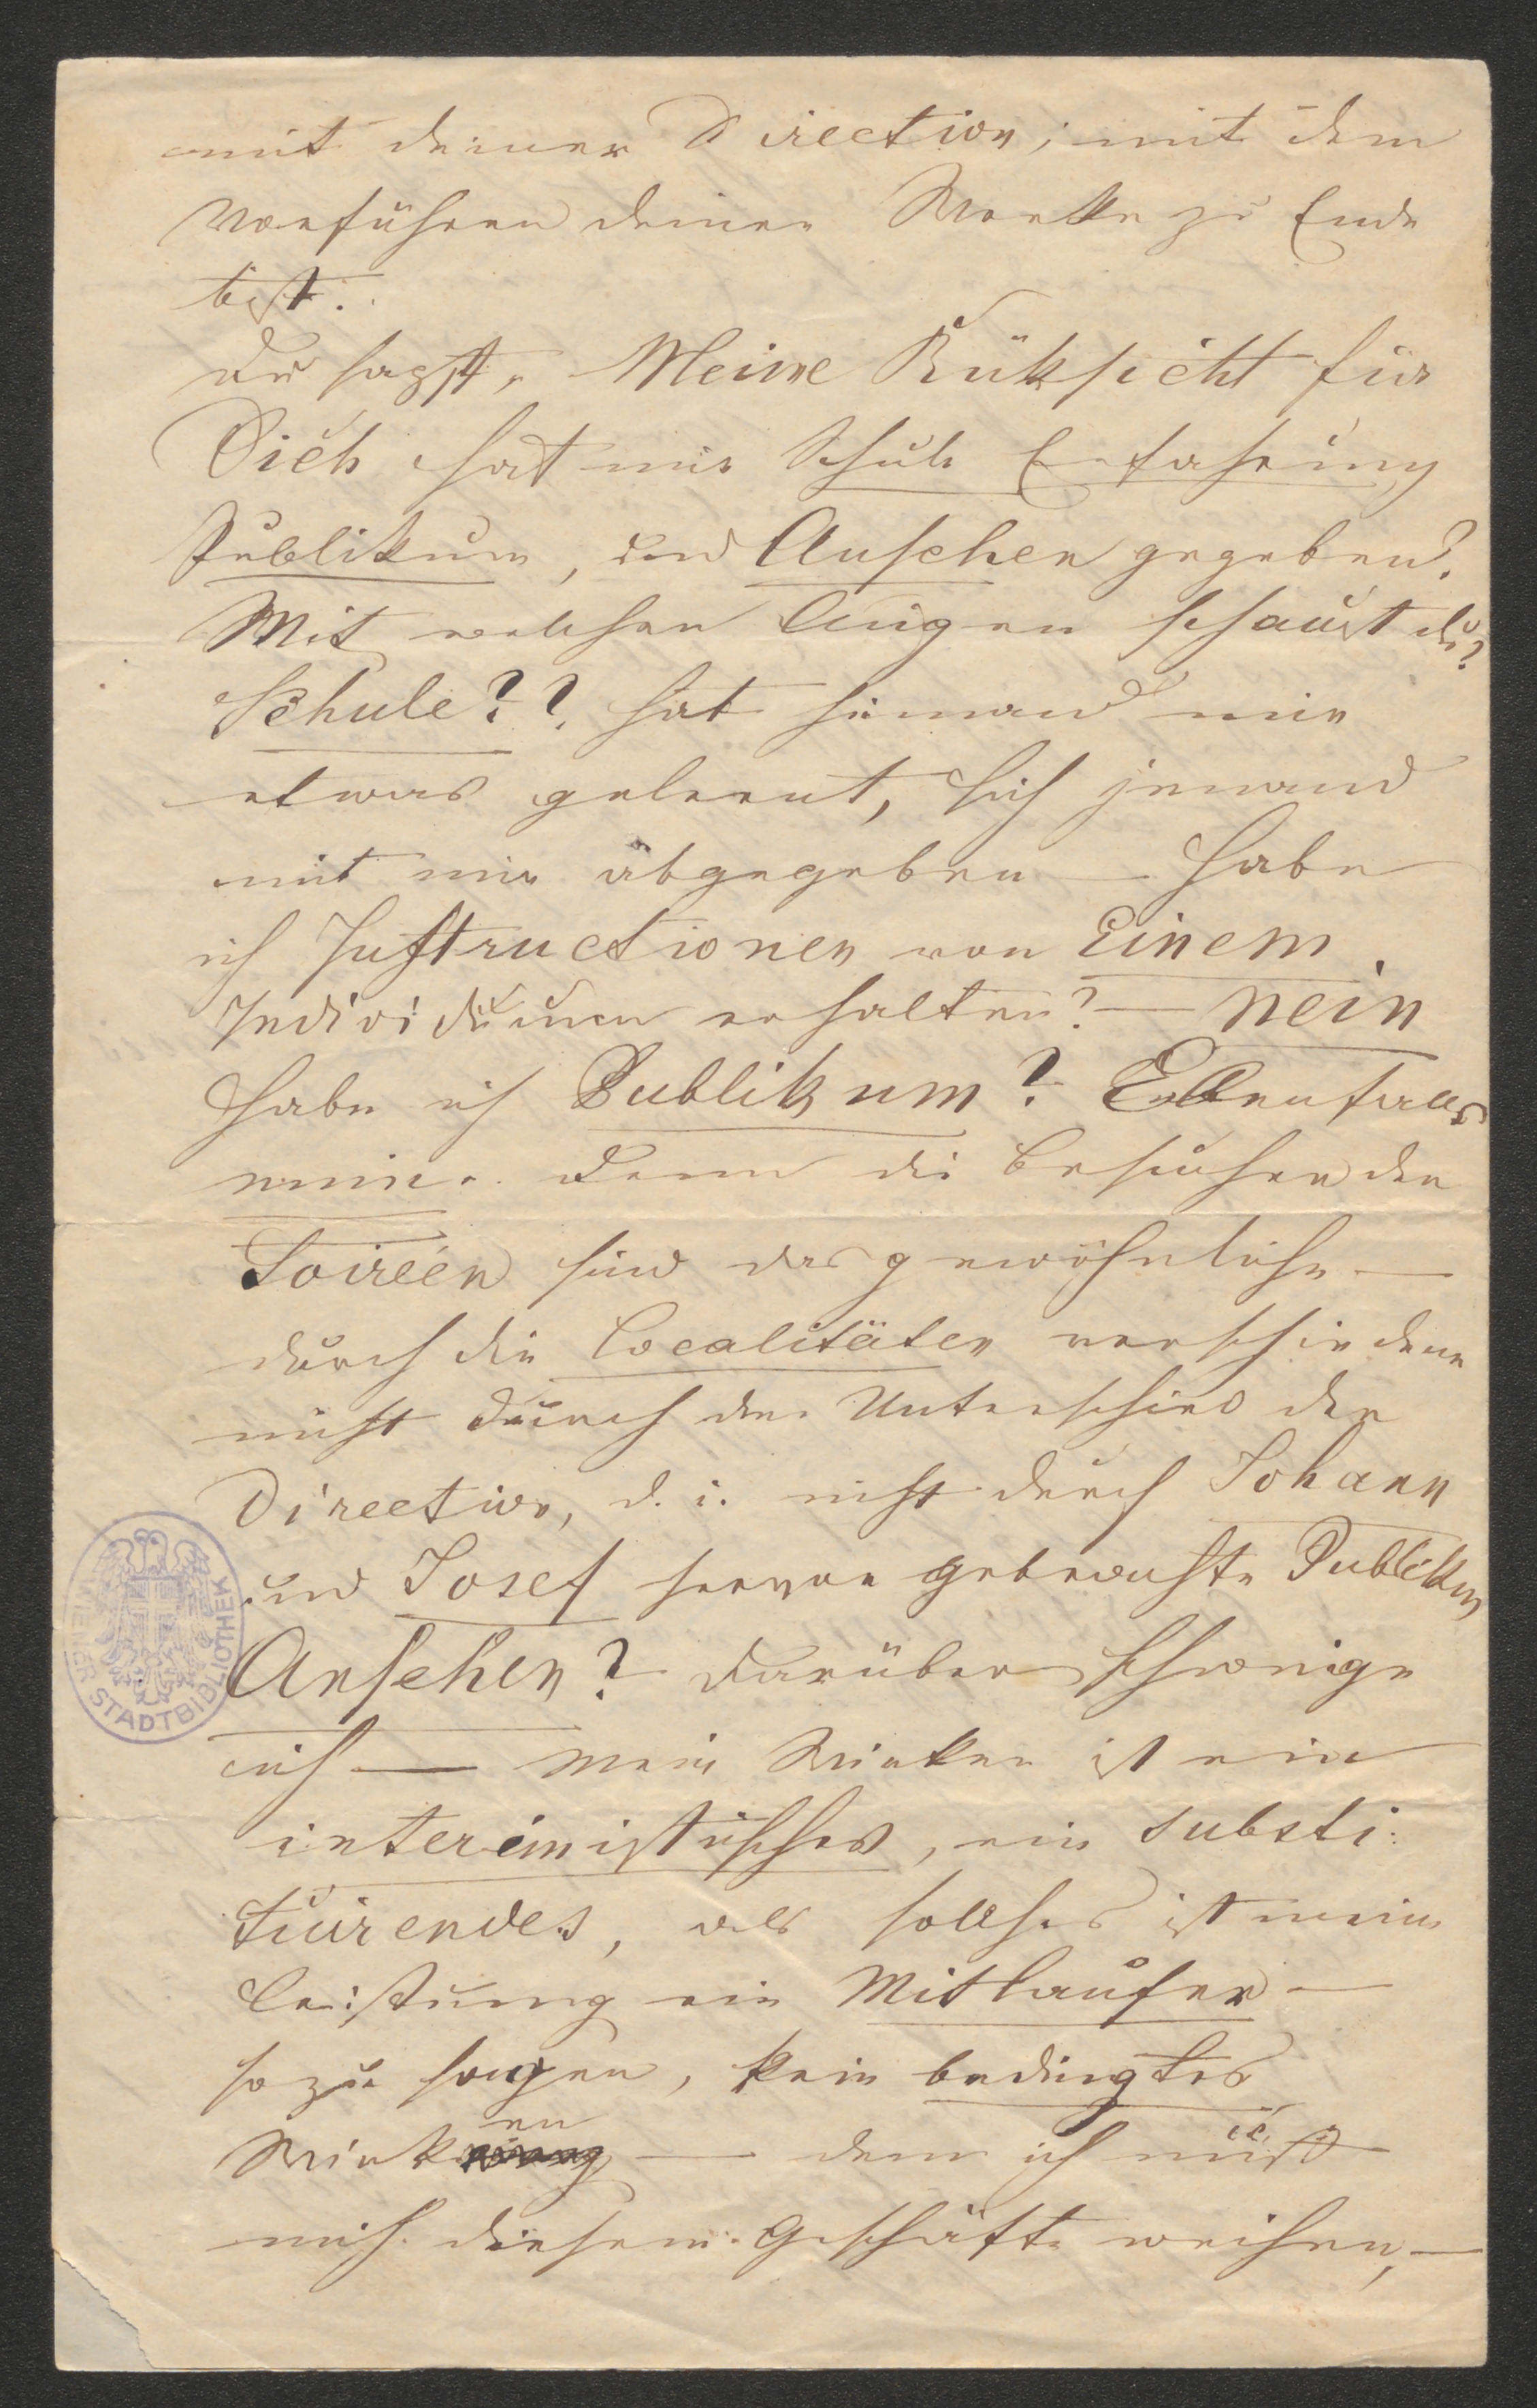 mit deiner Direction; mit dem
Vorführen deiner Werke zu Ende
ist.
Du sagst, Meine Rüksicht für
Dich hat mir Schule Erfahrung
Publikum, und Ansehen gegeben?
Mit welchen Augen schaust du?
Schule?? hat jemand mir
etwas gelernt, sich jemand
mit mir abgegeben — habe
ich Instructionen von Einem
Individuum erhalten? — nein
habe ich Publikum? Ebenfalls
nein. denn die Besucher der
Soiréen sind das gewöhnliche —
durch die Localitäten verschiedene
nicht durch den Unterschied der
Direction, d. i. nicht durch Johann
und Josef hervor gebrachte Publikum
Ansehen? darüber schweige
ich — mein Wirken ist ein
interimistisches, ein substi:
tuirendes, als solches ist meine
Leistung ein Mitlaufer —
so zu sagen, kein bedingtes
Wirken — denn ich müßt
mich diesem Geschäfte weihen, —
WIENER STADTBIBLIOTHEK